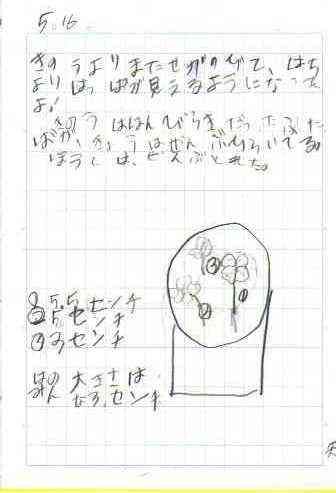 5.16
きのうよりまたせがのびて、はち
より はっぱが見えるようになって
よ!
きのうははんびらきだったふた
ばが、きょうはぜんぶひらいてる。
ぼうしは、ぜんぶとれた。
③ ② ①
5.5センチ
② 5センチ
③ 3センチ
大きさは
センチ